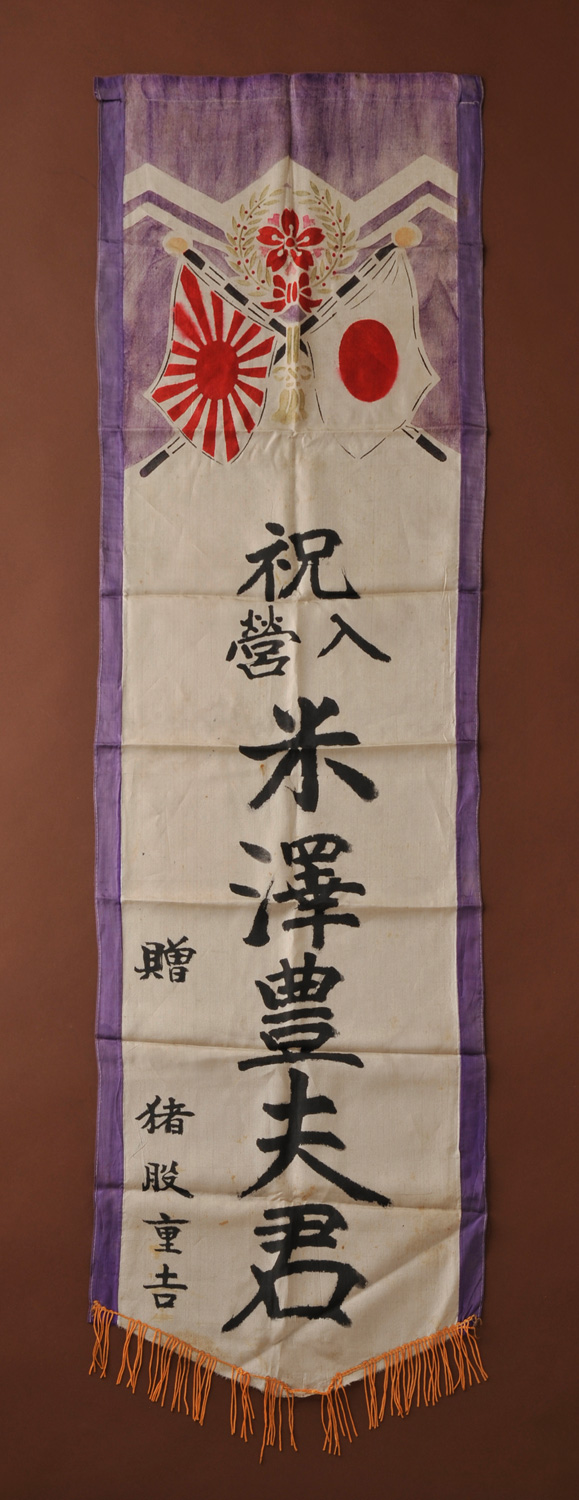 祝入營米澤豊夫君
贈　猪股重吉